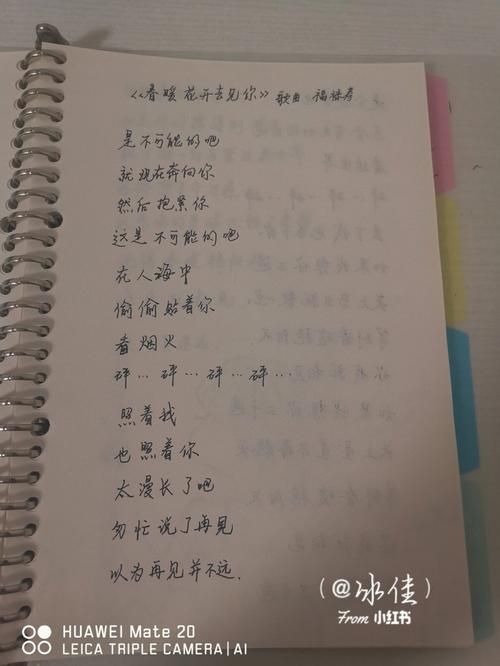 《春暖花开去见你》歌曲 福禄寿
是不可能的吧
就现在奔向你
然后抱紧你
这是不可能的吧
在人海中
偷偷贴着你
看烟火
砰…砰…砰…砰…
照着我
也照着你
太漫长了吧
匆忙说了再见
以为再见并不远.
(@冰佳)
From 小红书
HUAWEI Mate 20
LEICA TRIPLE CAMERA | AI